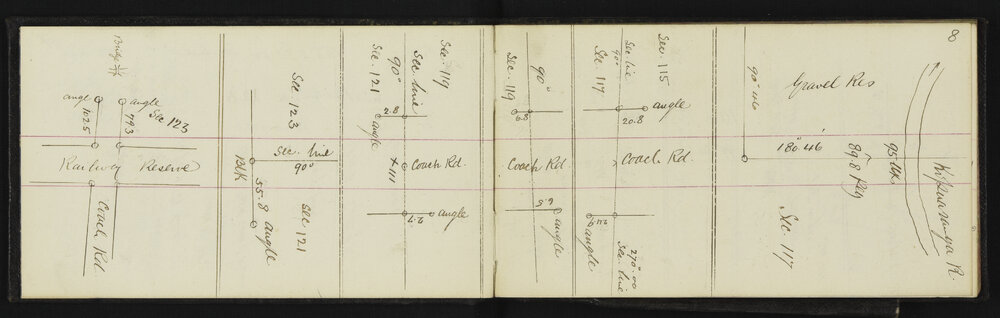 Bridge
angle
angle
1025
793
Sec 123
Railway Reserve
Coach Rd
Sec 123
Sec. line
90°
Blk
55.8
angle
Sec 121
Sec. 121
90°
Sec line
Sec. 119
2.8
angle
Coach Rd.
X 111
2.7
angle
Sec. 119
90°
Coach Rd
angle
Sec. 117
Sec line
90°
Sec. 115
angle
20.8
Coach Rd.
angle
270.00
Sec. line
8
90° 46
Gravel Res
180° 46
89.8 Peg
Sec 117
R.